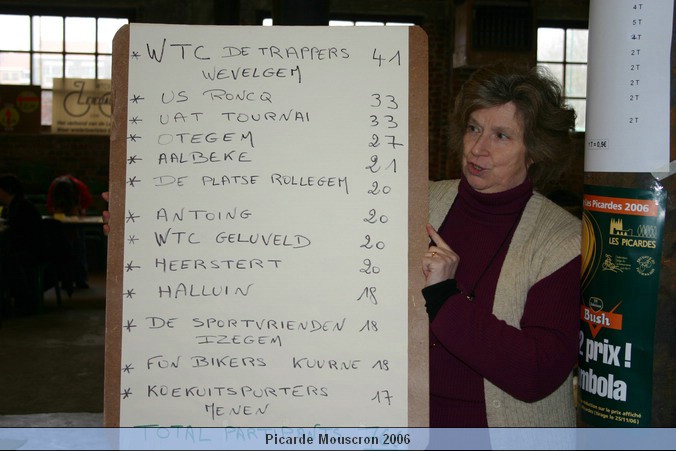 * WTC DE TRAPPERS 41
WEVELGEM
* US RONCQ 33
* UAT TOURNAI 33
* OTEGEM 27
* AALBEKE 21
* DE PLATSE ROLLEGEM 20
* ANTOING 20
* WTC GELUVELD 20
* HEERSTERT 20
* HALLUIN 18
* DE SPORTVRIENDEN 18
IZEGEM
* FUN BIKERS KUURNE 18
* KOEKUITSPURTERS 17
MENEN
TOTAL
4 T
5 T
4 T
2 T
2 T
2 T
2 T
1T = 0,5€
Les Picardes 2006
LES PICARDES
Bush
2 prix !
mbola
Picarde Mouscron 2006